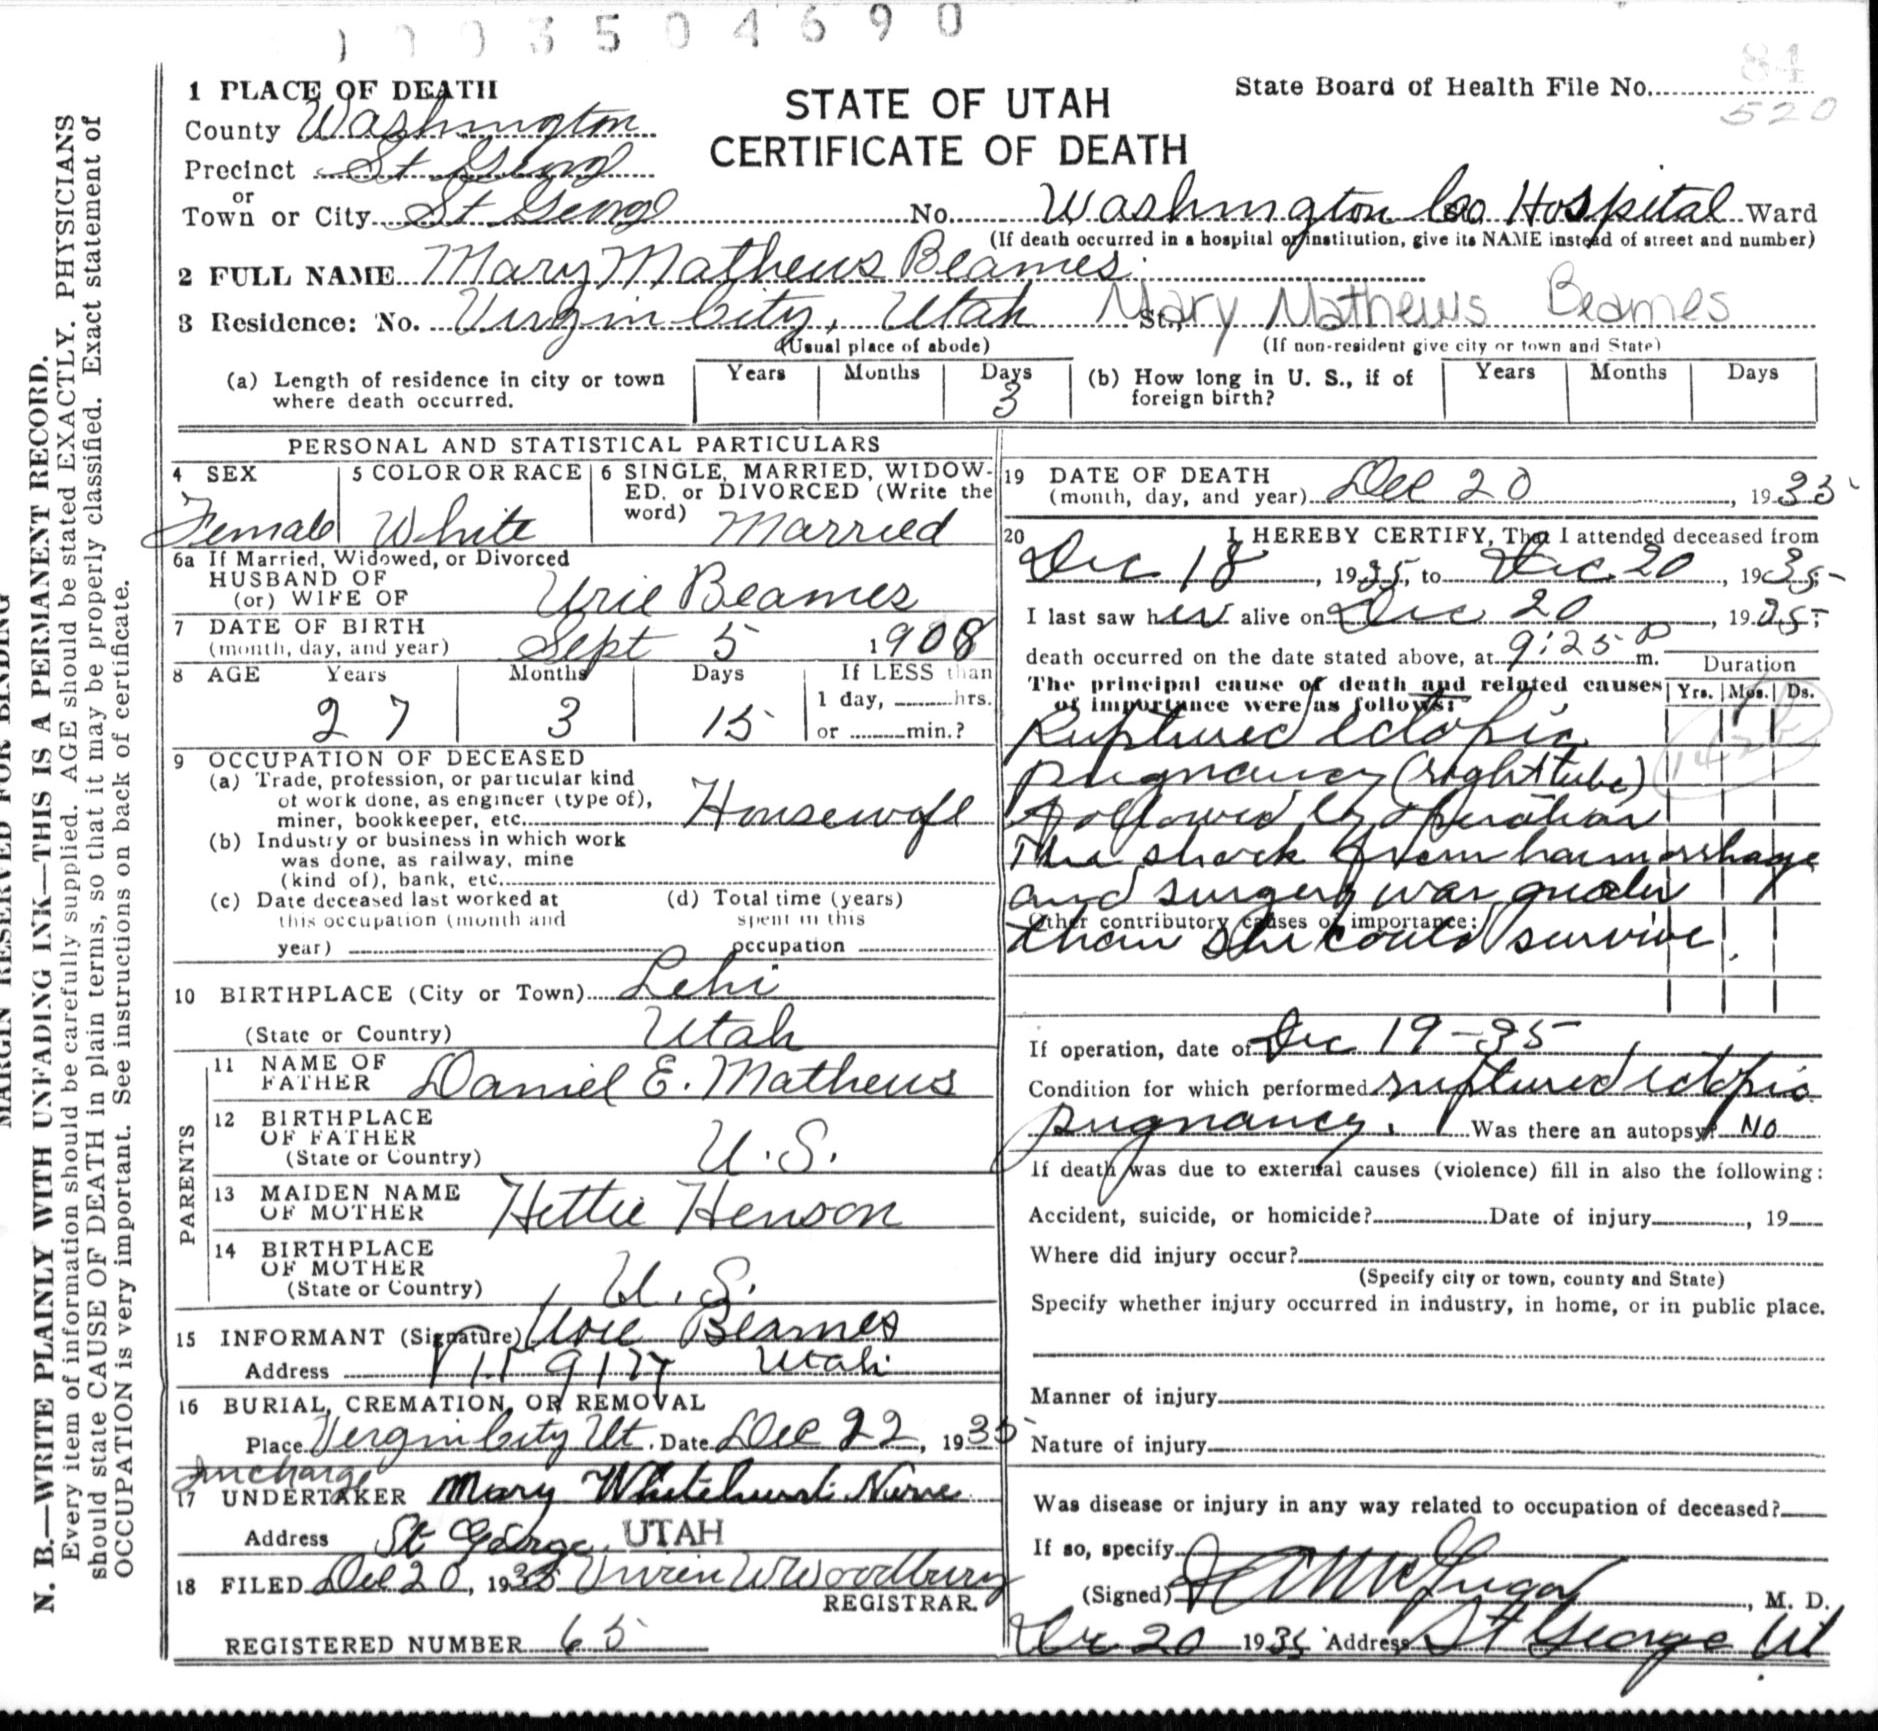 1003504690
84
1 PLACE OF DEATH
STATE OF UTAH
CERTIFICATE OF DEATH
State Board of Health File No.
520
County Washington
Precinct St George
or
Town or City St George No. Washington Co. Hospital Ward
(If death occurred in a hospital or institution, give its NAME instead of street and number)
2 FULL NAME Mary Mathews Beames
3 Residence: No. Virgin City, Utah St., Mary Mathews Beames
(Usual place of abode) (If non-resident give city or town and State)
(a) Length of residence in city or town where death occurred. Years Months Days 3
(b) How long in U. S., if of foreign birth? Years Months Days
PERSONAL AND STATISTICAL PARTICULARS
4 SEX Female
5 COLOR OR RACE White
6 SINGLE, MARRIED, WIDOW-
ED, or DIVORCED (Write the
word) Married
6a If Married, Widowed, or Divorced
HUSBAND OF
(or) WIFE OF Urie Beames
7 DATE OF BIRTH
(month, day, and year) Sept 5 1908
8 AGE Years Months Days If LESS than
27 3 15 1 day, hrs.
or min.?
9 OCCUPATION OF DECEASED
(a) Trade, profession, or particular kind
of work done, as engineer (type of),
miner, bookkeeper, etc. Housewife
(b) Industry or business in which work
was done, as railway, mine
(kind of), bank, etc.
(c) Date deceased last worked at
this occupation (month and
year)
(d) Total time (years)
spent in this
occupation
10 BIRTHPLACE (City or Town) Lehi
(State or Country) Utah
PARENTS
11 NAME OF
FATHER Daniel E. Mathews
12 BIRTHPLACE
OF FATHER
(State or Country) U.S.
13 MAIDEN NAME
OF MOTHER Hettie Henson
14 BIRTHPLACE
OF MOTHER
(State or Country) U.S.
15 INFORMANT (Signature) Urie Beames
Address Utah
16 BURIAL, CREMATION, OR REMOVAL
Place Vergin City Ut. Date Dec 22, 1935
In charge
17 UNDERTAKER Mary Whitehurst Nurse
Address St George, UTAH
18 FILED Dec 20, 1935 Vivien W Woodbury
REGISTRAR.
REGISTERED NUMBER 65
19 DATE OF DEATH
(month, day, and year) Dec 20, 1935
20 I HEREBY CERTIFY, That I attended deceased from
Dec 18, 1935, to Dec. 20, 1935
I last saw her alive on Dec 20, 1935;
death occurred on the date stated above, at 9:25 P m.
Duration
The principal cause of death and related causes
of importance were as follows:
Yrs. Mos. Ds.
Ruptured ectopic
pregnancy (right tube)
followed by operation
The shock from haemorrhage
and surgery was greater
Other contributory causes of importance:
than she could survive.
If operation, date of Dec 19-35
Condition for which performed ruptured ectopic
pregnancy. Was there an autopsy? No
If death was due to external causes (violence) fill in also the following:
Accident, suicide, or homicide? Date of injury, 19
Where did injury occur?
(Specify city or town, county and State)
Specify whether injury occurred in industry, in home, or in public place.
Manner of injury
Nature of injury
Was disease or injury in any way related to occupation of deceased?
If so, specify
(Signed) McGregor, M. D.
Dec 20 1935 Address St George Ut
MARGIN RESERVED FOR BINDING
N. B.—WRITE PLAINLY WITH UNFADING INK—THIS IS A PERMANENT RECORD.
Every item of information should be carefully supplied. AGE should be stated EXACTLY. PHYSICIANS
should state CAUSE OF DEATH in plain terms, so that it may be properly classified. Exact statement of
OCCUPATION is very important. See instructions on back of certificate.